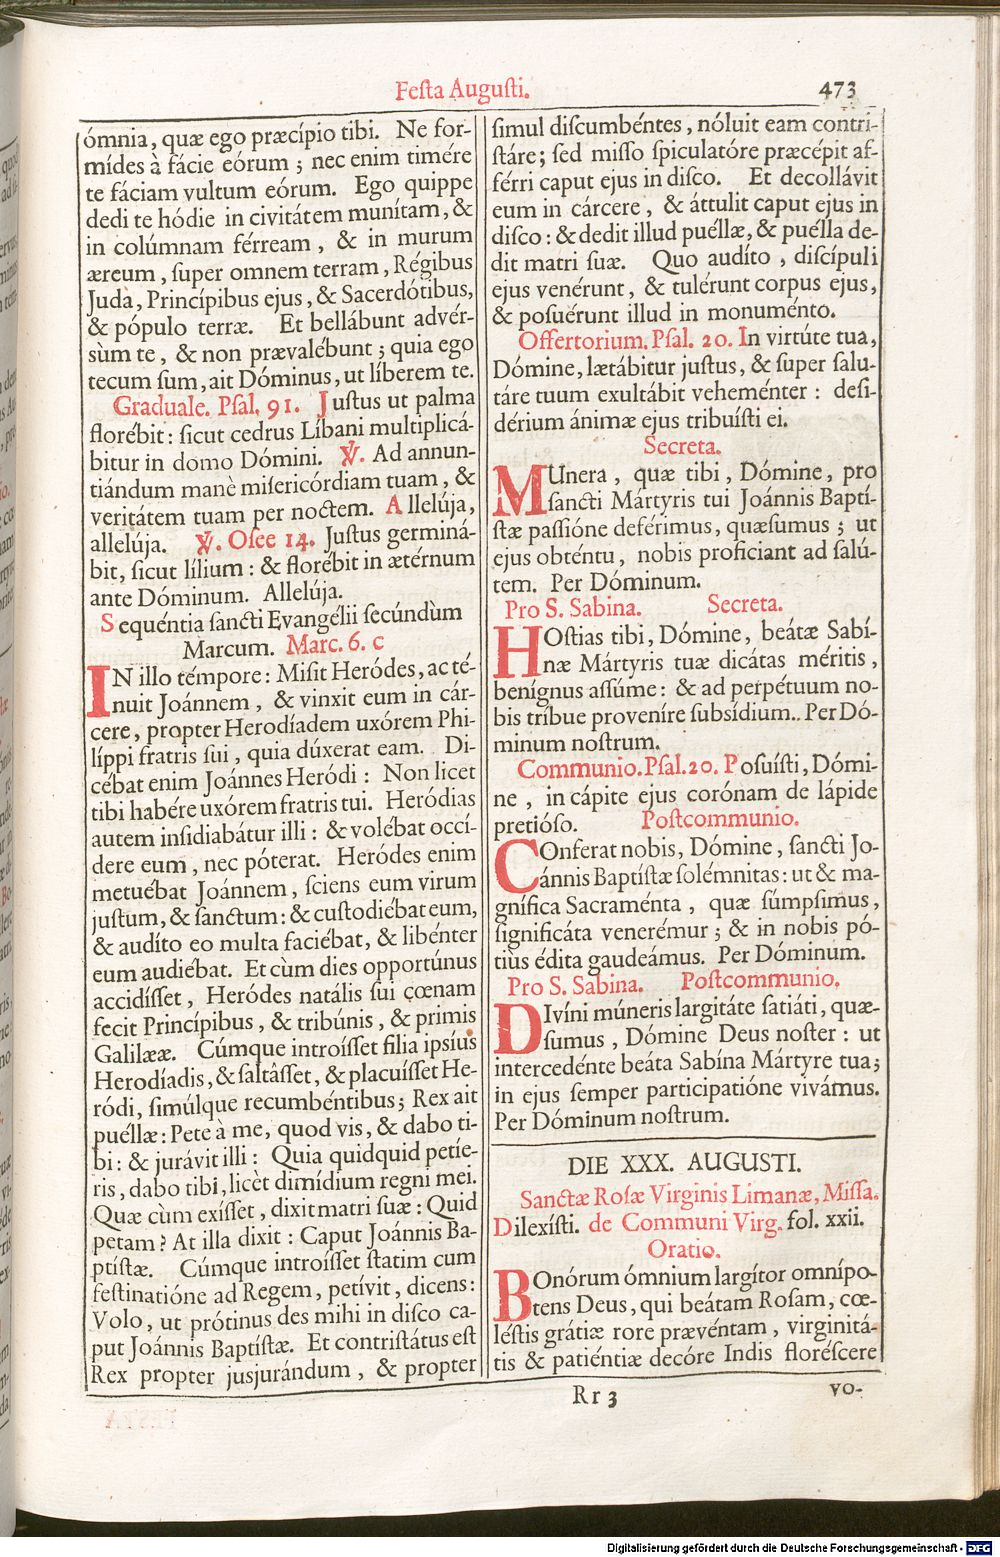 Festa Augusti.
473
ómnia, quæ ego præcípio tibi. Ne for-
mídes à fácie eórum ; nec enim timére
te fáciam vultum eórum. Ego quippe
dedi te hódie in civitátem munítam, &
in colúmnam férream , & in murum
æreum , ſuper omnem terram , Régibus
Juda, Princípibus ejus , & Sacerdótibus,
& pópulo terræ. Et bellábunt advér-
sùm te , & non prævalébunt ; quia ego
tecum ſum, ait Dóminus, ut líberem te.
Graduale. Pſal. 91. Juſtus ut palma
florébit : ſicut cedrus Líbani multiplicá-
bitur in domo Dómini. ℣. Ad annun-
tiándum manè miſericórdiam tuam , &
veritátem tuam per noctem. Allelúja,
allelúja. ℣. Oſee 14. Juſtus germiná-
bit, ſicut lílium : & florébit in ætérnum
ante Dóminum. Allelúja.
Sequéntia ſancti Evangélii ſecúndùm
Marcum. Marc. 6. c
IN illo témpore : Miſit Heródes, ac té-
nuit Joánnem , & vinxit eum in cár-
cere, propter Herodíadem uxórem Phi-
líppi fratris ſui , quia dúxerat eam. Di-
cébat enim Joánnes Heródi : Non licet
tibi habére uxórem fratris tui. Heródias
autem inſidiabátur illi : & volébat occí-
dere eum , nec póterat. Heródes enim
metuébat Joánnem , ſciens eum virum
juſtum, & ſanctum : & cuſtodiébat eum,
& audíto eo multa faciébat, & libénter
eum audiébat. Et cùm dies opportúnus
accidíſſet , Heródes natális ſui cœnam
fecit Princípibus , & tribúnis , & primis
Galilææ. Cúmque introíſſet filia ipsíus
Herodíadis, & ſaltâſſet , & placuíſſet He-
ródi, ſimúlque recumbéntibus; Rex ait
puéllæ : Pete à me, quod vis, & dabo ti-
bi : & jurávit illi : Quia quidquid petíe-
ris , dabo tibi, licèt dimídium regni mei.
Quæ cùm exíſſet , dixit matri ſuæ : Quid
petam? At illa dixit : Caput Joánnis Ba-
ptíſtæ. Cúmque introíſſet ſtatim cum
feſtinatióne ad Regem , petívit , dicens :
Volo, ut prótinus des mihi in diſco ca-
put Joánnis Baptíſtæ. Et contriſtátus eſt
Rex propter jusjurándum , & propter
ſimul diſcumbéntes , nóluit eam contri-
ſtáre ; ſed miſſo ſpiculatóre præcépit af-
férri caput ejus in diſco. Et decollávit
eum in cárcere , & áttulit caput ejus in
diſco : & dedit illud puéllæ, & puélla de-
dit matri ſuæ. Quo audíto , diſcípuli
ejus venérunt , & tulérunt corpus ejus,
& poſuérunt illud in monuménto.
Offertorium. Pſal. 20. In virtúte tua,
Dómine, lætábitur juſtus, & ſuper ſalu-
táre tuum exultábit veheménter : deſi-
dérium ánimæ ejus tribuíſti ei.
Secreta.
MUnera , quæ tibi , Dómine, pro
ſancti Mártyris tui Joánnis Baptí-
ſtæ paſſióne deférimus, quæſumus ; ut
ejus obténtu , nobis proficiant ad ſalú-
tem. Per Dóminum.
Pro S. Sabina. Secreta.
HOſtias tibi, Dómine, beátæ Sabí-
næ Mártyris tuæ dicátas méritis ,
benígnus aſſúme : & ad perpétuum no-
bis tríbue proveníre ſubsídium.. Per Dó-
minum noſtrum.
Communio. Pſal. 20. Poſuíſti, Dómi-
ne , in cápite ejus corónam de lápide
pretióſo. Poſtcommunio.
COnferat nobis, Dómine , ſancti Jo-
ánnis Baptíſtæ ſolémnitas : ut & ma-
gnífica Sacraménta , quæ ſúmpſimus ,
ſignificáta venerémur ; & in nobis pó-
tiùs édita gaudeámus. Per Dóminum.
Pro S. Sabina. Poſtcommunio.
DIvíni múneris largitáte ſatiáti, quæ-
ſumus , Dómine Deus noſter : ut
intercedénte beáta Sabína Mártyre tua;
in ejus ſemper participatióne vivámus.
Per Dóminum noſtrum.
DIE XXX. AUGUSTI.
Sanctæ Roſæ Virginis Limanæ, Miſſa.
Dilexíſti. de Communi Virg. fol. xxii.
Oratio.
BOnórum ómnium largítor omnípo-
tens Deus, qui beátam Roſam, cœ-
léſtis grátiæ rore prævéntam , virginitá-
tis & patiéntiæ decóre Indis floréſcere
Rr 3
vo-
Digitalisierung gefördert durch die Deutsche Forschungsgemeinschaft - DFG